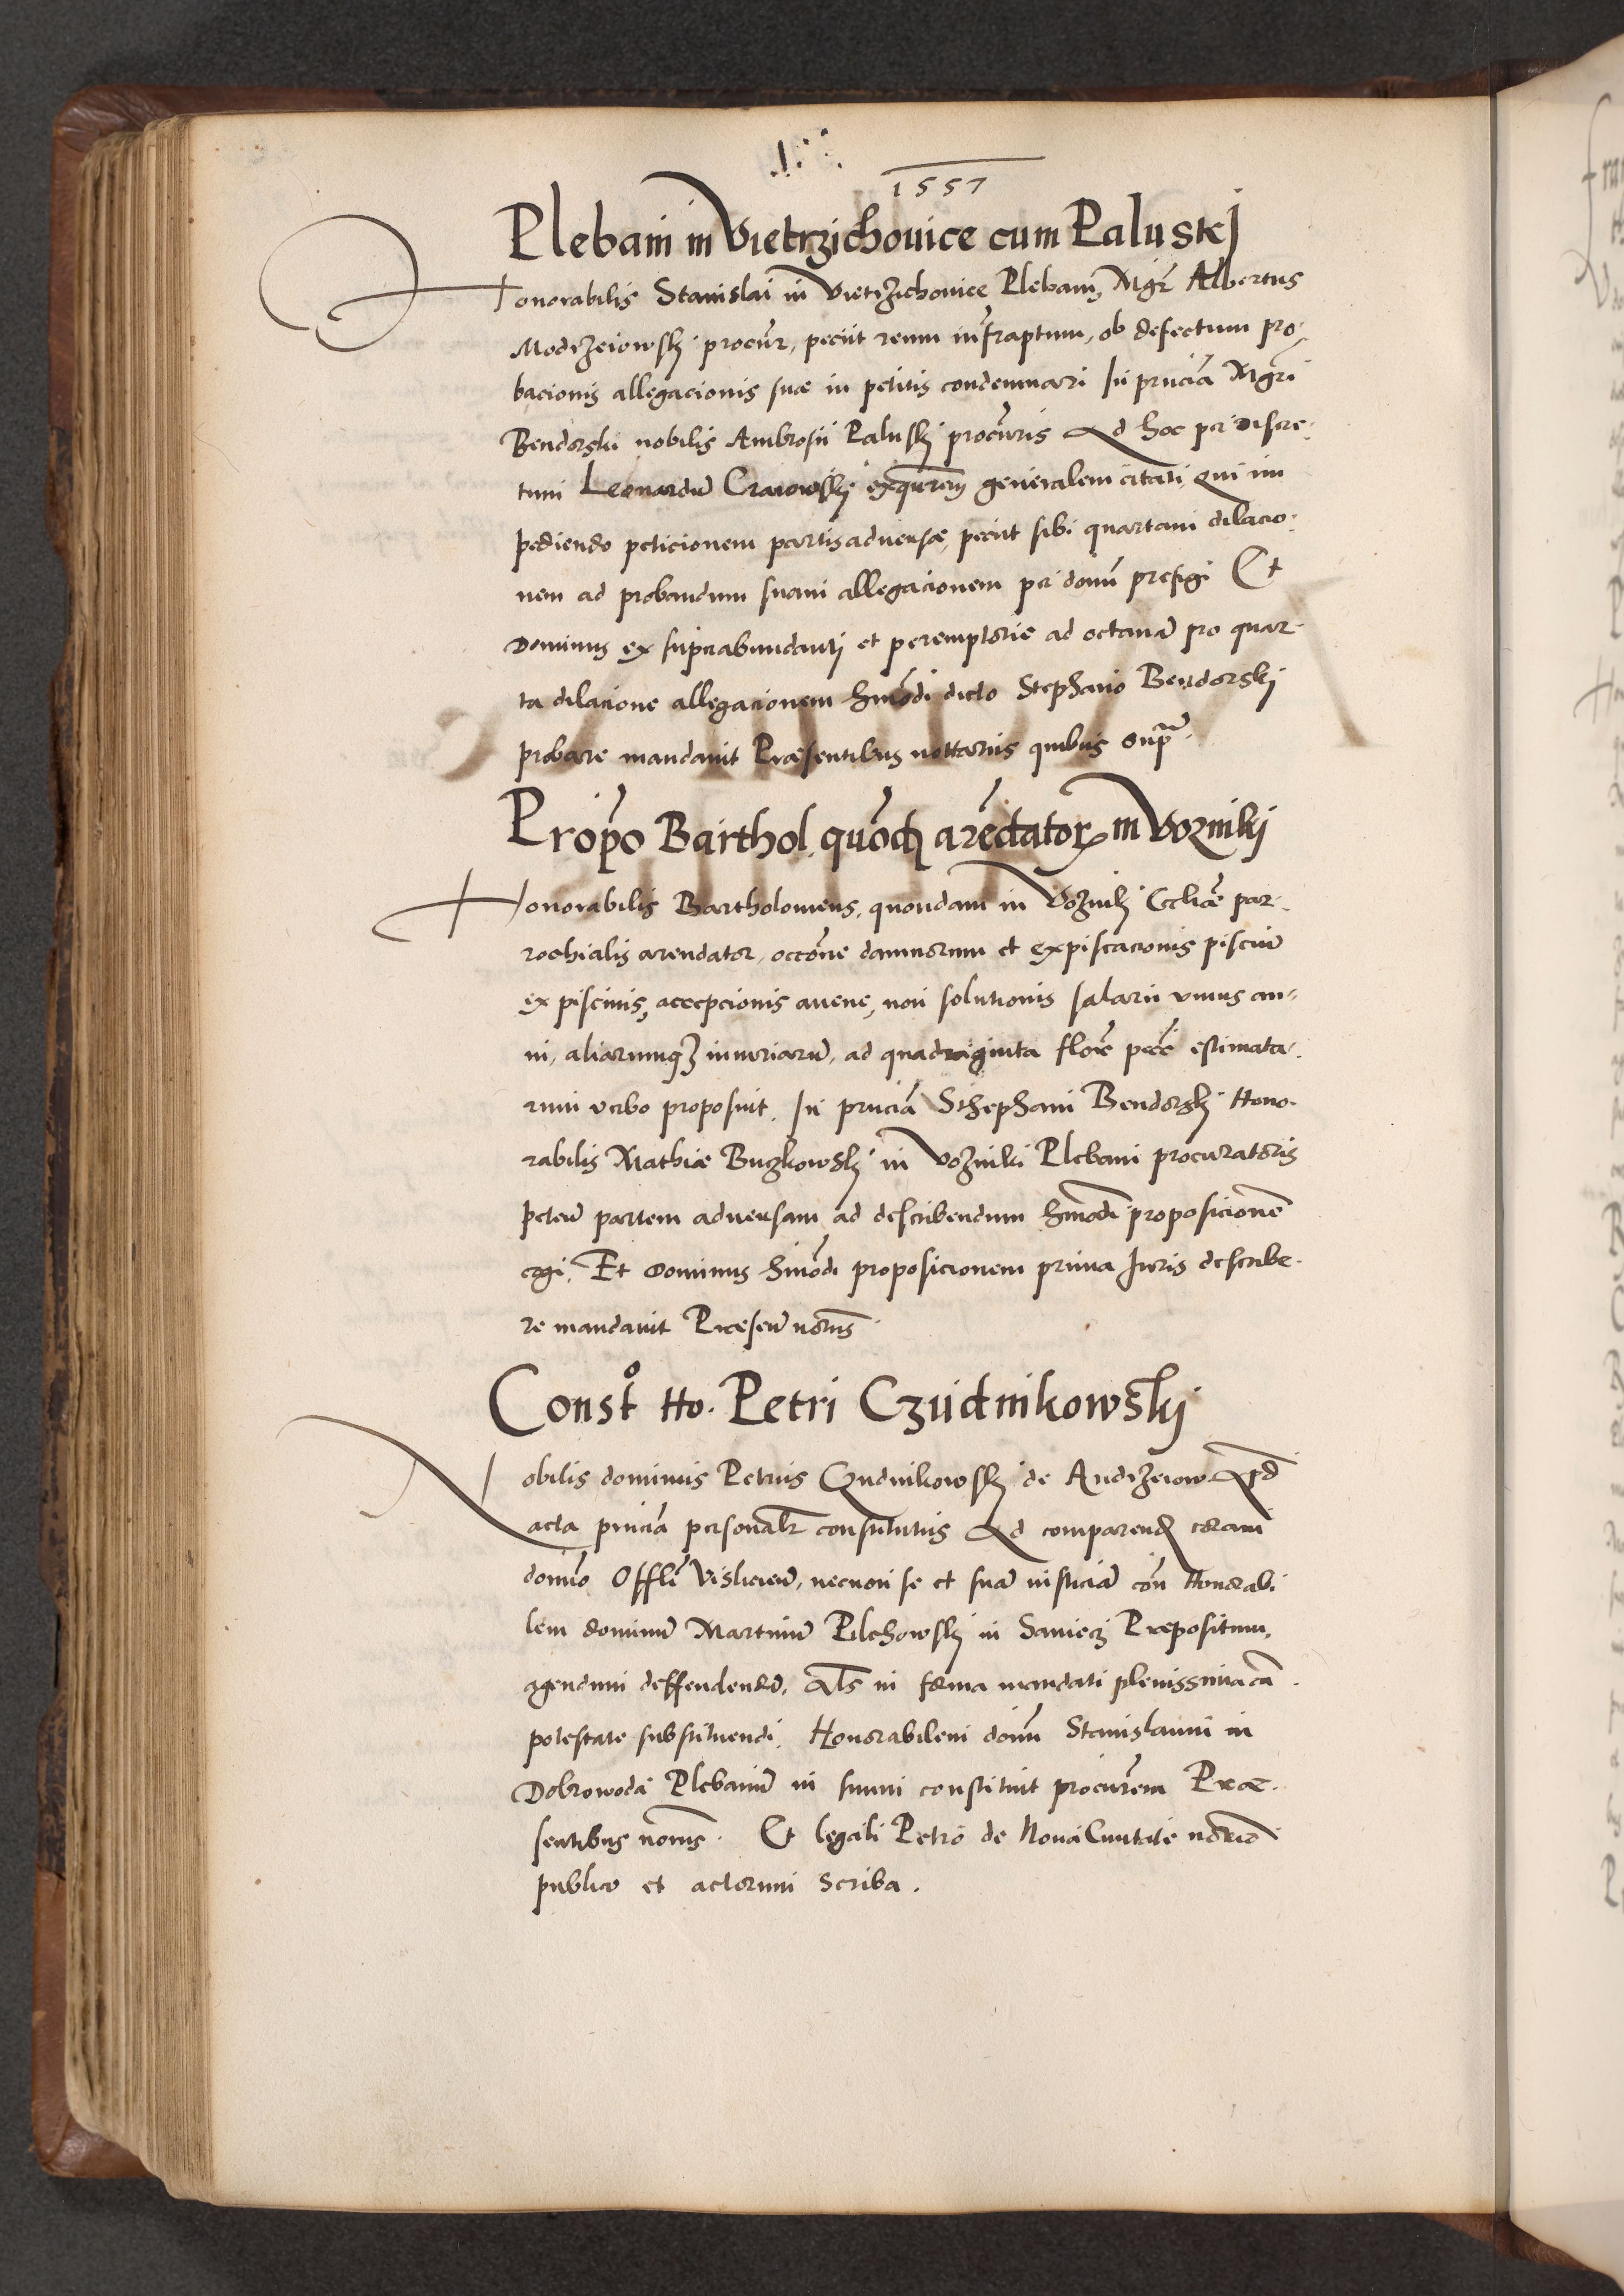 1557
Plebani in Vietrzichouice cum Paluskj
Honorabilis Stanislai in Vietrzichouice Plebani, Mgr̃ Albertus
Modrzeiowskj procũr, peciit reum infraptum, ob defectum pro,
bacionis allegacionis suæ in petitis condemnari In pñciã Mgr̃i
Bendorski nobilis Ambrosii Paluskj procũris Ad hoc per discre,
tum Leonardũ Craiowskj exequtorem generalem citati, Qui im
pediendo peticionem partis aduersæ, peciit sibi quartam dilacio,
nem ad probandum suam allegacionem per domũ prefigi Et
Dominus ex supérabundanti et peremptorie ad octauã pro quar,
ta dilacione allegacionem hmõdi dicto Stephano Bendorskj
probare mandauit Præsentibus nottariis quibus supᵃ.
Propõ Barthol. quõd arẽdator in Voznikj
Honorabilis Bartholomeus, quondam in Voznikj Eccliæ par,
rochialis arendator, occõne damnorum et expiscacionis pisciũ
ex piscinis, accepcionis auene, non solutionis salarii unius an,
ni, aliarumq3 iniuriarũ, ad quadraginta florẽ pecẽ estimata,
rum verbo proposuit. In pñciã Sthephani Bendorskj Hono,
rabilis Mathiæ Buzkowskj in Vozniki Plebani procuratoris
peteñ partem aduersam ad describendum hmõdi proposicionẽ
cogi. Et Dominus hmõdi proposicionem prima Iuris describe,
re mandauit Præseñ notriis
Constᵒ Ho. Petri Czudnikowskj
Nobilis dominus Petrus Czudnikowskj de Andrzeiow Apd
acta pñciã personalr̃ constitutus Ad comparend coram
domĩo Offłi Vislicieñ, necnon se et suã iusticiã cõn Honorabi
lem dominũ Martinũ Pilchowskj in Saniecz Præpositum,
agendum deffendendũ, Als in forma mandati plenissima cũ
potestate substituendi, Honorabilem domũ Stanislaum in
Dobrowoda Plebanũ in suum constituit procũrem Præ,
sentibus notriis. Et legali Petro de Noua Ciuitate notrio
publico et actorum Scriba.